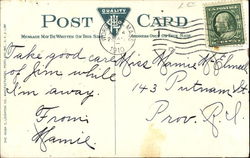 QUALITY
POST CARD
MESSAGE MAY BE WRITTEN ON THIS SIDE
ADDRESS ONLY ON THIS SIDE
1910
U.S. POSTAGE
Take good care
of Jim while
I'm away.
From
Mamie
Miss Mamie McElmeel
143 Putnam St
Prov. R.I.